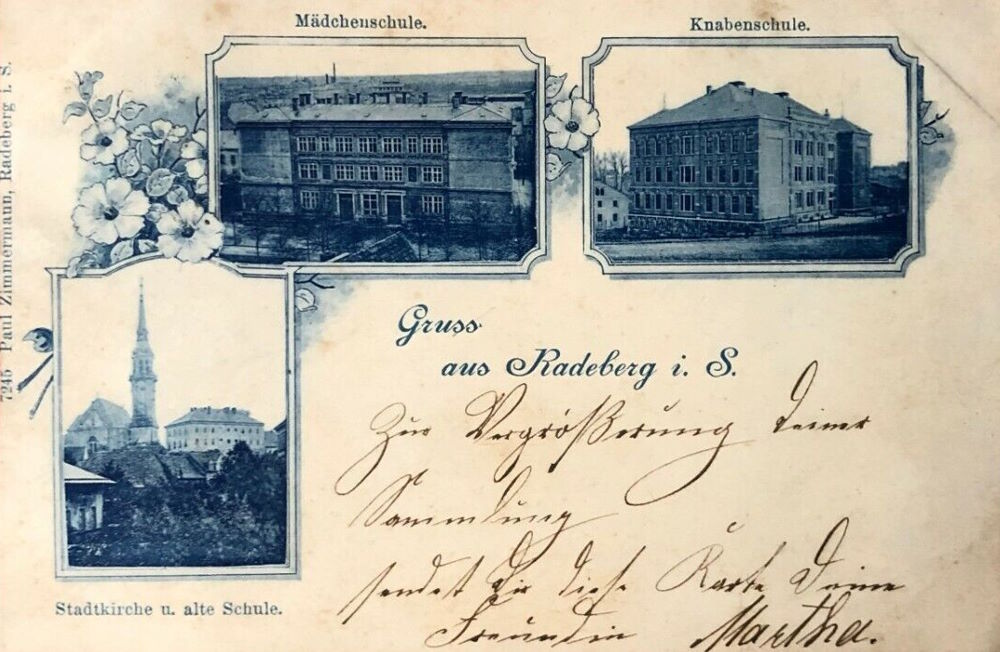 Mädchenschule.
Knabenschule.
7245 Paul Zimmermann, Radeberg i. S.
Gruss
aus Radeberg i. S.
Zur Vergrößerung deiner
Sammlung
sendet dir diese Karte Deine
Freundin Martha.
Stadtkirche u. alte Schule.